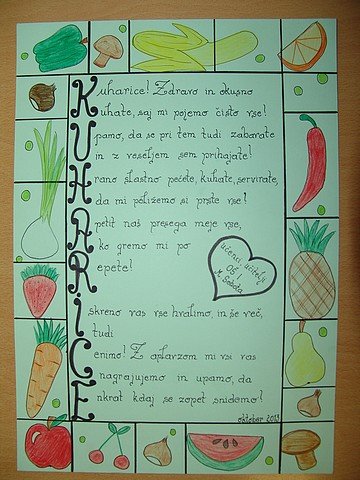 Kuharice! Zdravo in okusno
kuhate, saj mi pojemo čisto vse!
Upamo, da se pri tem tudi zabavate
in z veseljem sem prihajate!
Hrano slastno pečete, kuhate, servirate,
da mi poližemo si prste vse!
Apetit naš presega meje vse,
ko gremo mi po
Repete!
učenci, učitelji
OŠ I
M. Sobota
Iskreno vas vse hvalimo, in še več,
tudi
Cenimo! Z aplavzom mi vsi vas
nagrajujemo in upamo, da
Enkrat kdaj se zopet snidemo!
oktober 2013